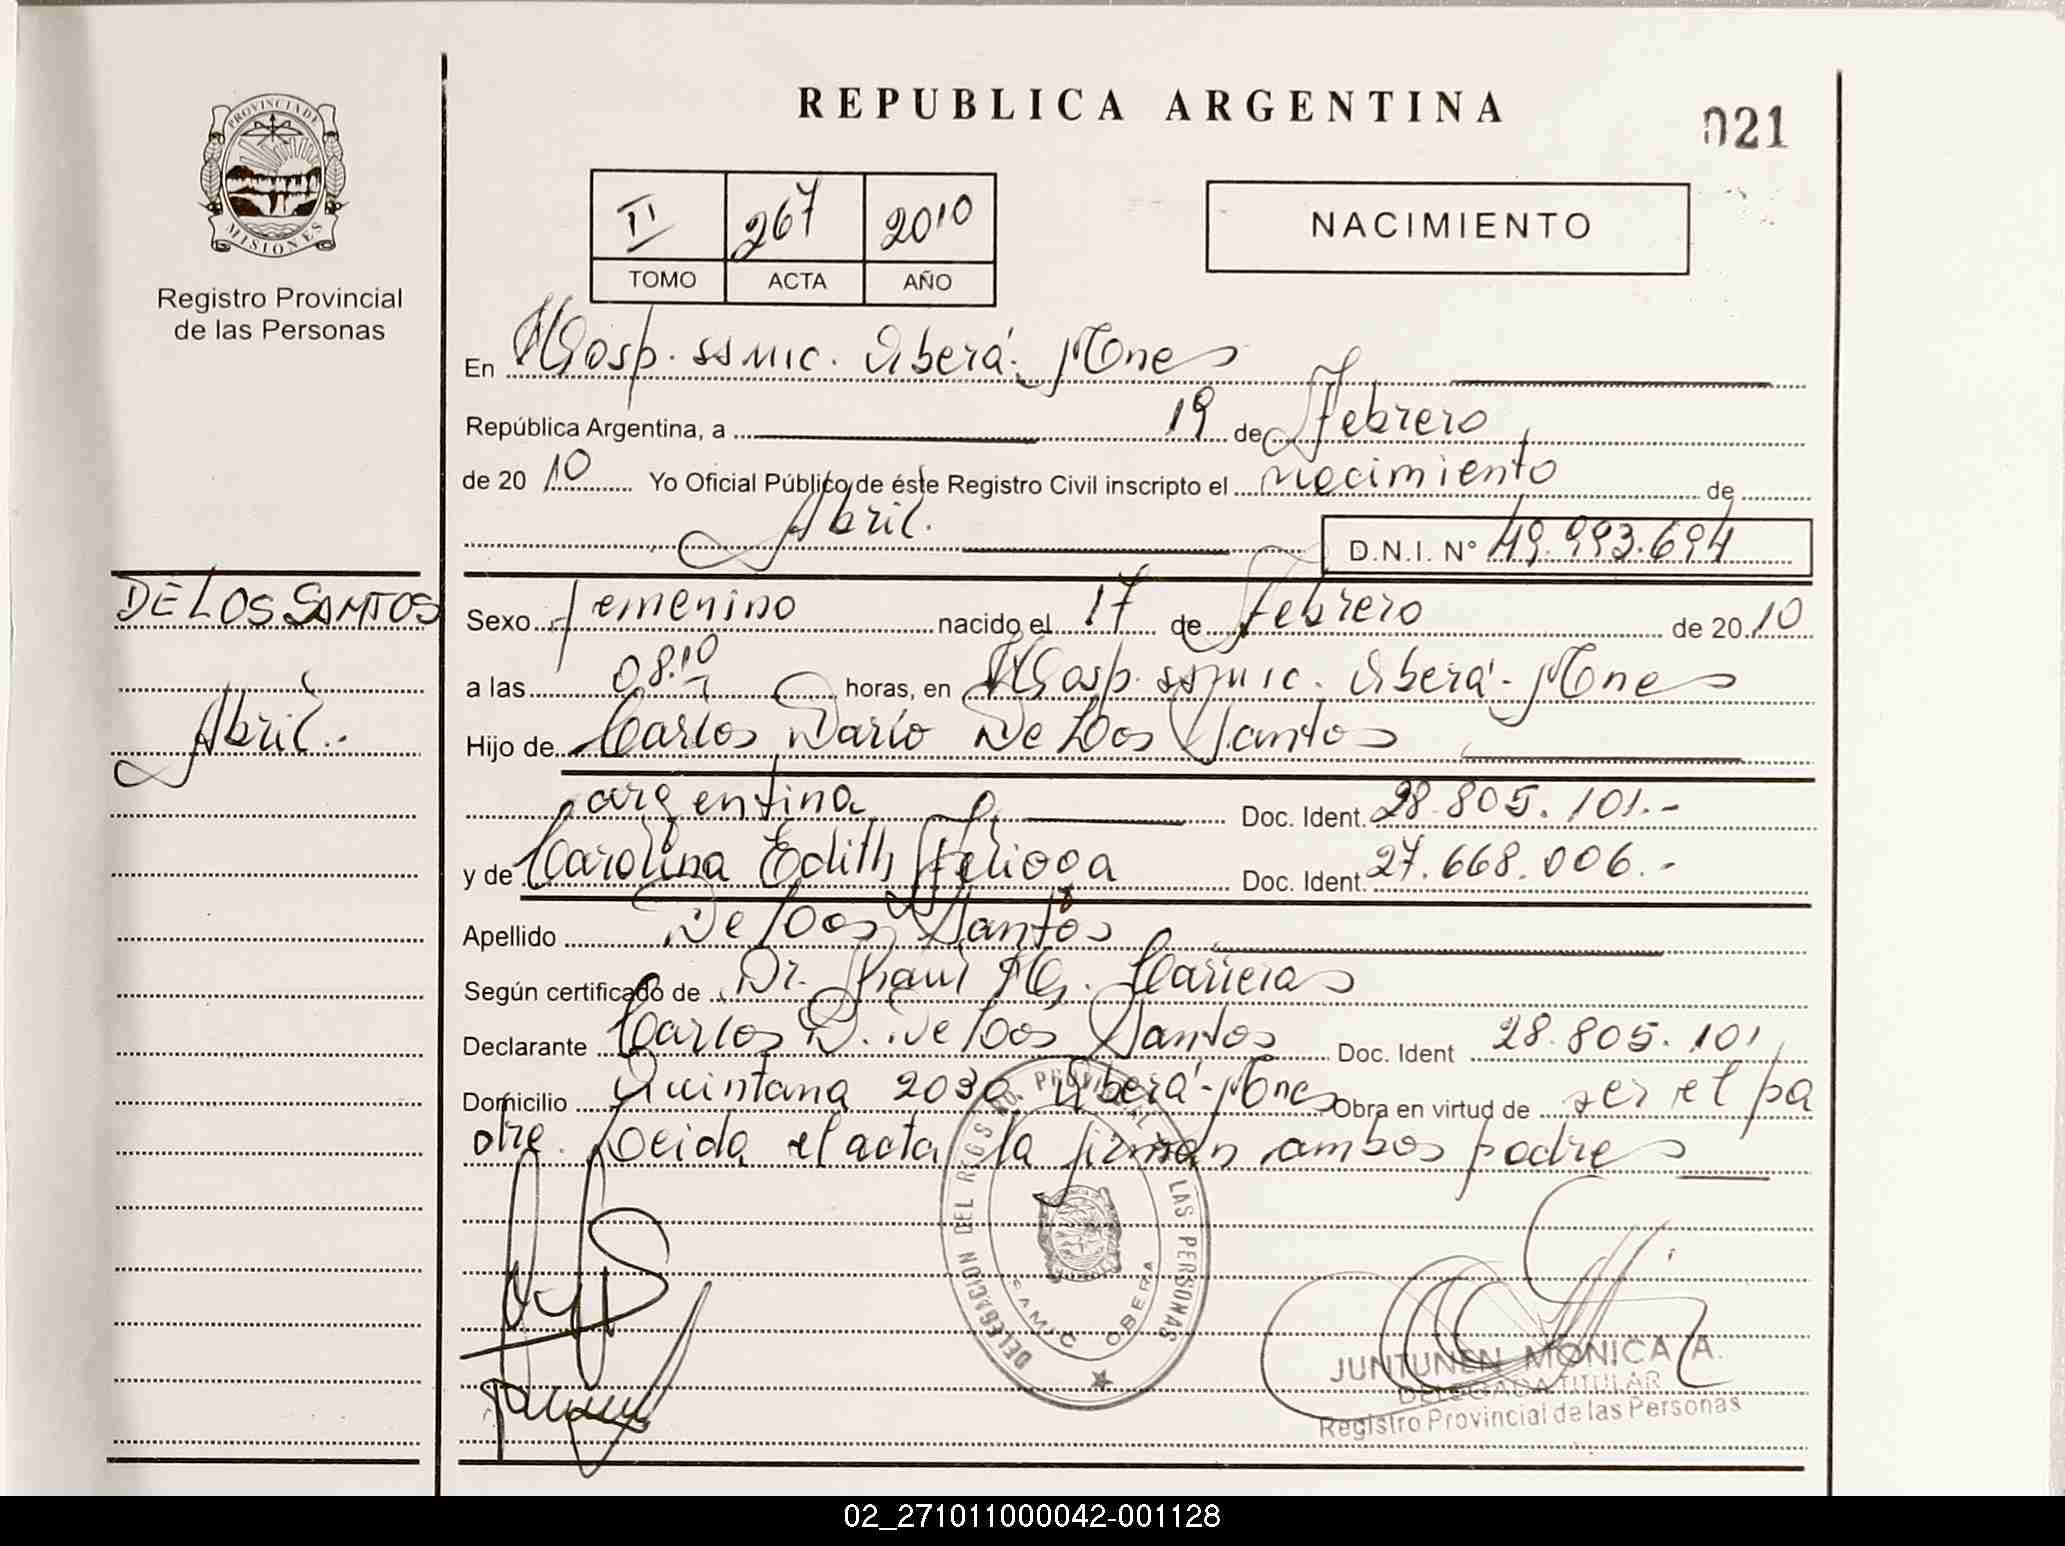 REPUBLICA ARGENTINA
021
PROVINCIA DE
MISIONES
Registro Provincial
de las Personas
II 267 2010
TOMO ACTA AÑO
NACIMIENTO
En Hosp. ssmic. Oberá - Mnes
República Argentina, a 19 de Febrero
de 2010 Yo Oficial Público de éste Registro Civil inscripto el nacimiento de
Abril. D.N.I. Nº 49.993.694
DE LOS SANTOS
Abril.-
Sexo femenino nacido el 17 de Febrero de 2010
a las 08.10 horas, en Hosp. ssmic. Oberá - Mnes
Hijo de Carlos Dario De Los Santos
argentina Doc. Ident. 28.805.101.-
y de Carolina Edith Doc. Ident. 27.668.006.-
Apellido De Los Santos
Según certificado de Dr. Raul H. Carreras
Declarante Carlos D. De Los Santos Doc. Ident 28.805.101
Domicilio Quintana 2030 Oberá - Mnes Obra en virtud de ser el pa
dre. Leida el acta la firman ambos padres
DELEGACION DEL REG. PROVINCIAL LAS PERSONAS
SAMIC OBERA
JUNTUNEN MONICA A.
DELEGADA TITULAR
Registro Provincial de las Personas
02_271011000042-001128